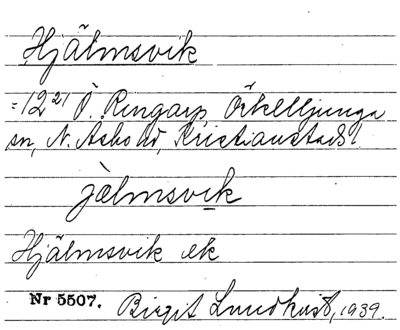 Hjälmsvik
= 12²¹ Ö. Ringarp Örkelljunga
sn, N. Åsbo hd, Kristianstads l
jælmsvik
Hjälmsvik ek
Nr 5507. Birgit Lundkvist, 1939.